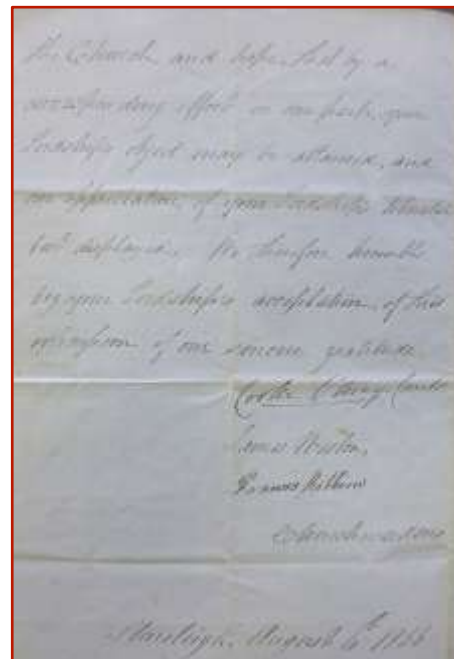 the Church and hope, that by a
corresponding effort on our part, your
Lordships object may be attained, and
an appreciation of your Lordships
displayed. We therefore humbly
beg your Lordship's acceptation, of this
expression of our sincere gratitude
James
Churchwardens
August 6th 1866